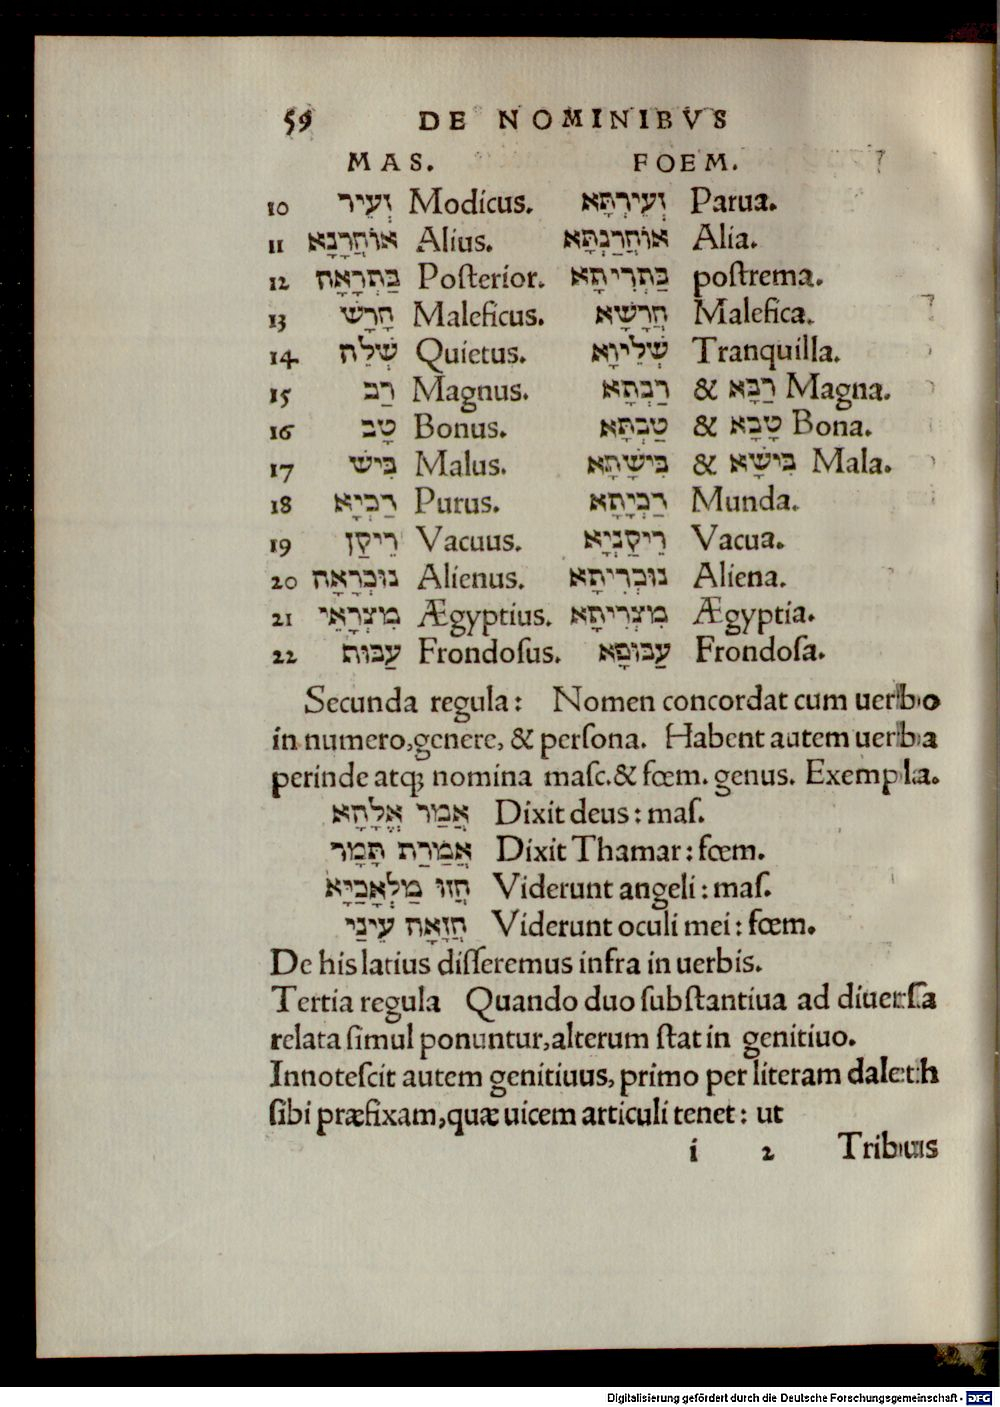 59 DE NOMINIBVS
MAS. FOEM.
10 זְעֵיר Modicus. זְעֵירְתָּא Parua.
11 אוֹחֲרָנָא Alius. אוֹחֲרַנְתָּא Alia.
12 בַּתְרָאָה Poſterior. בַּתְרִיתָא poſtrema.
13 חָרָשׁ Maleficus. חֲרָשָׁא Malefica.
14 שְׁלֵה Quietus. שְׁלֵיוָא Tranquilla.
15 רַב Magnus. רַבְתָא & רַבָּא Magna.
16 טָב Bonus. טַבְתָּא & טָבָא Bona.
17 בִּישׁ Malus. בִּישָׁתָא & בִּישָׁא Mala.
18 רַכְיָא Purus. רַכְיָתָא Munda.
19 רֵיקַן Vacuus. רֵיקַנְיָא Vacua.
20 נוּכְרָאָה Alienus. נוּכְרִיתָא Aliena.
21 מִצְרָאֵי Ægyptius. מִצְרִיתָא Ægyptia.
22 עַבוּת Frondoſus. עַבוּפָא Frondoſa.
Secunda regula: Nomen concordat cum uerbo
in numero,genere, & perſona. Habent autem uerba
perinde atqꝫ nomina maſc.& fœm. genus. Exempla.
אֲמַר אֱלָהָא Dixit deus: maſ.
אֲמַרַת תָּמָר Dixit Thamar: fœm.
חֲזוּ מַלְאֲכַיָּא Viderunt angeli: maſ.
חֲזָאָה עֵינַי Viderunt oculi mei: fœm.
De his latius diſſeremus infra in uerbis.
Tertia regula Quando duo ſubſtantiua ad diuerſa
relata ſimul ponuntur,alterum ſtat in genitiuo.
Innoteſcit autem genitiuus, primo per literam daleth
ſibi præfixam,quæ uicem articuli tenet: ut
i 2 Tribus
Digitalisierung gefördert durch die Deutsche Forschungsgemeinschaft - DFG